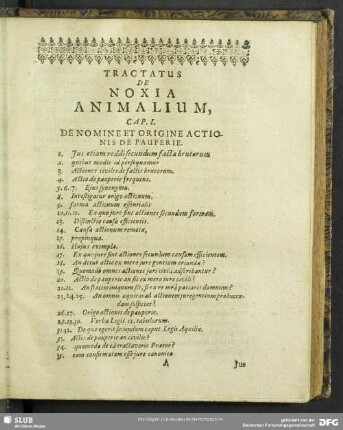 TRACTATUS
DE
NOXIA
ANIMALIUM,
CAP. I.
DE NOMINE ET ORIGINE ACTIO-
NIS DE PAUPERIE.
1. Jus etiam reddi secundum facta brutorum
2. quibus modis id persequamur
3. Actiones civiles de factis brutorum.
4. Actio de pauperie frequens.
5. 6. 7. Ejus synonyma.
8. Investigatur origo actionum.
9. forma actionum essentialis
10. 11. 12. Ex quo jure sint actiones secundum formam.
13. Distinctio causæ efficientis.
14. Causa actionum remota,
15. propinqua.
16. Hujus exempla.
17. Ex quo jure sint actiones secundum causam efficientem.
18. An detur actio ex mero jure gentium oriunda?
19. Quomodo omnes actiones juri civili adscribantur?
20. Actio de pauperie an sit ex mero jure civili?
21. 22. An
23. 24. 25. An omnis æquitas ad actionem jure gentium producen-
dam sufficiat?
26. 27. Origo actionis de pauperie.
28. 29. 30. Verba Legis 12. tabularum.
31. 32. De quo egerit secundum caput Legis Aquiliæ.
33. Actio de pauperie an civilis?
34. quomodo de eâ tractaverit Prætor?
35. eam confirmatam esse jure canonico
A
Jus
SLUB
Wir führen Wissen.
gefördert von der
Deutschen Forschungsgemeinschaft
DFG